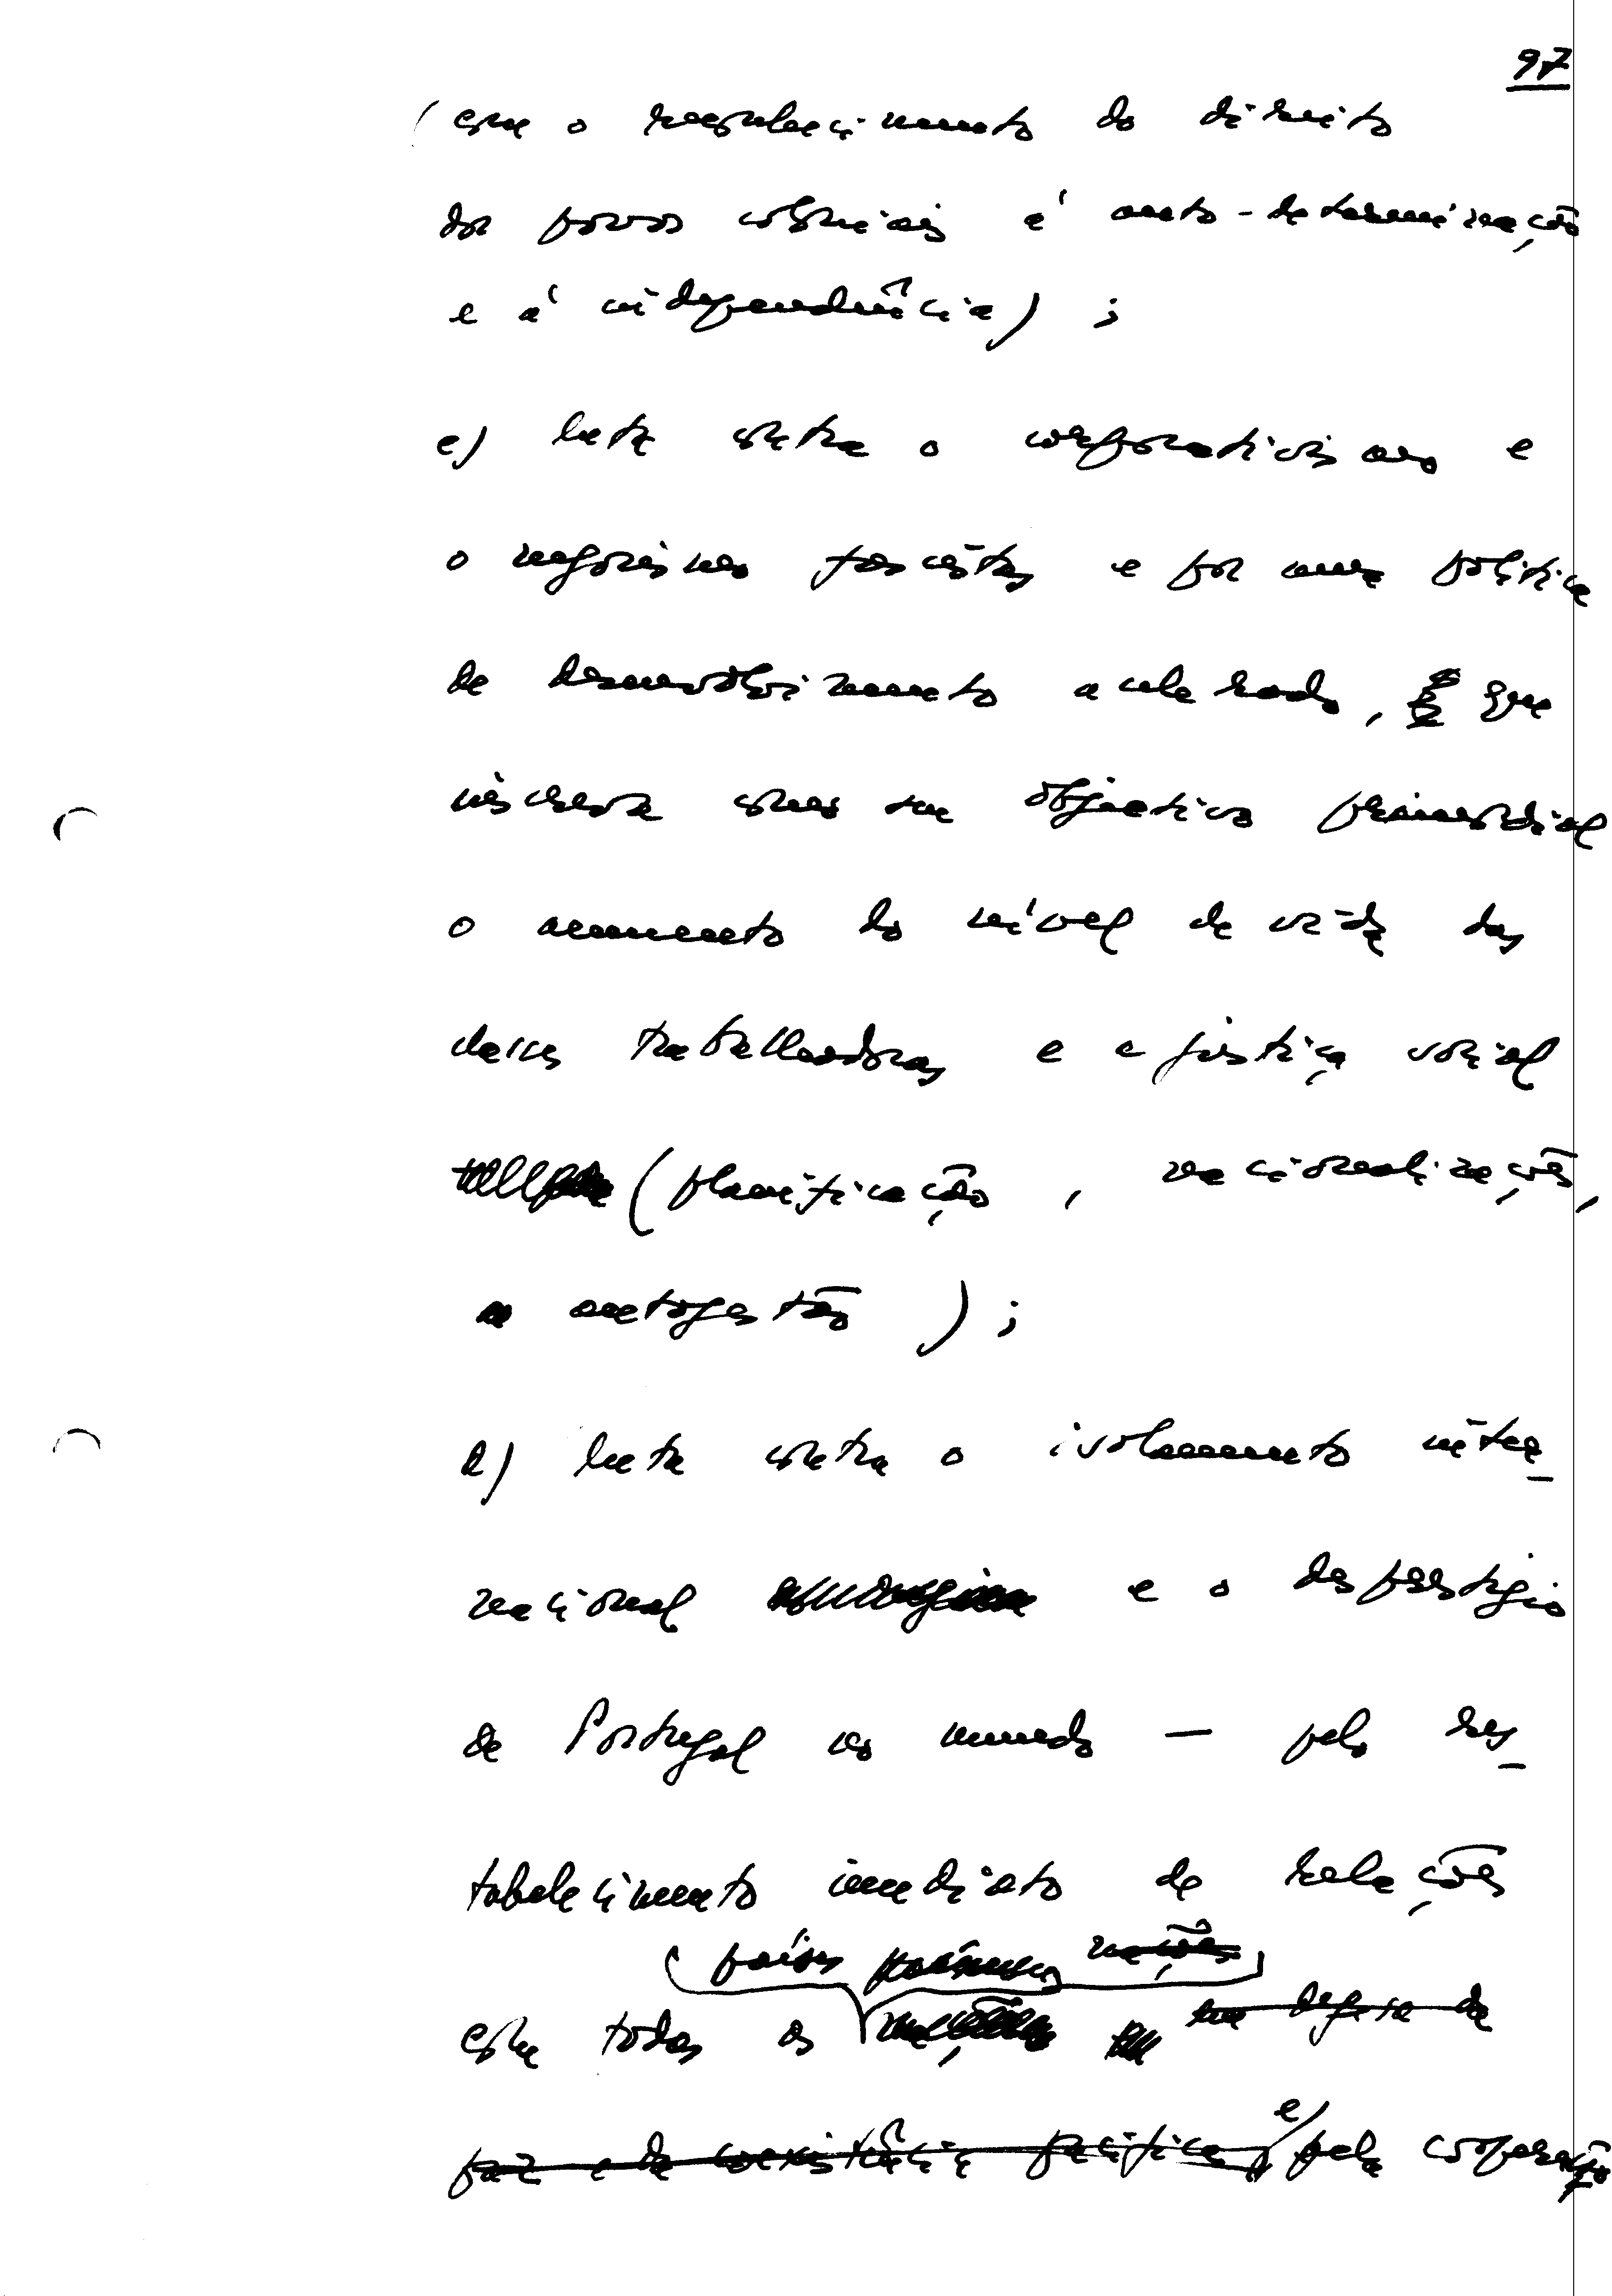 97
(com o reconhecimento do direito
dos povos coloniais à auto-determinação
e à independência) ;
c) luta contra o corporativismo e
o fascistas e por uma política
de desenvolvimento acelerado, que
inscreva como seu objectivo primordial
o aumento do nível de vida das
classes trabalhadoras e a justiça social
(planificação , nacionalizações,
autogestão ) ;
d) luta contra o isolamento inter-
nacional e o desprestígio
de Portugal no mundo — pelo res-
tabelecimento imediato de relações
países nações
com todos os na defesa da
paz e da coexistência pacífica, e pela cooperação